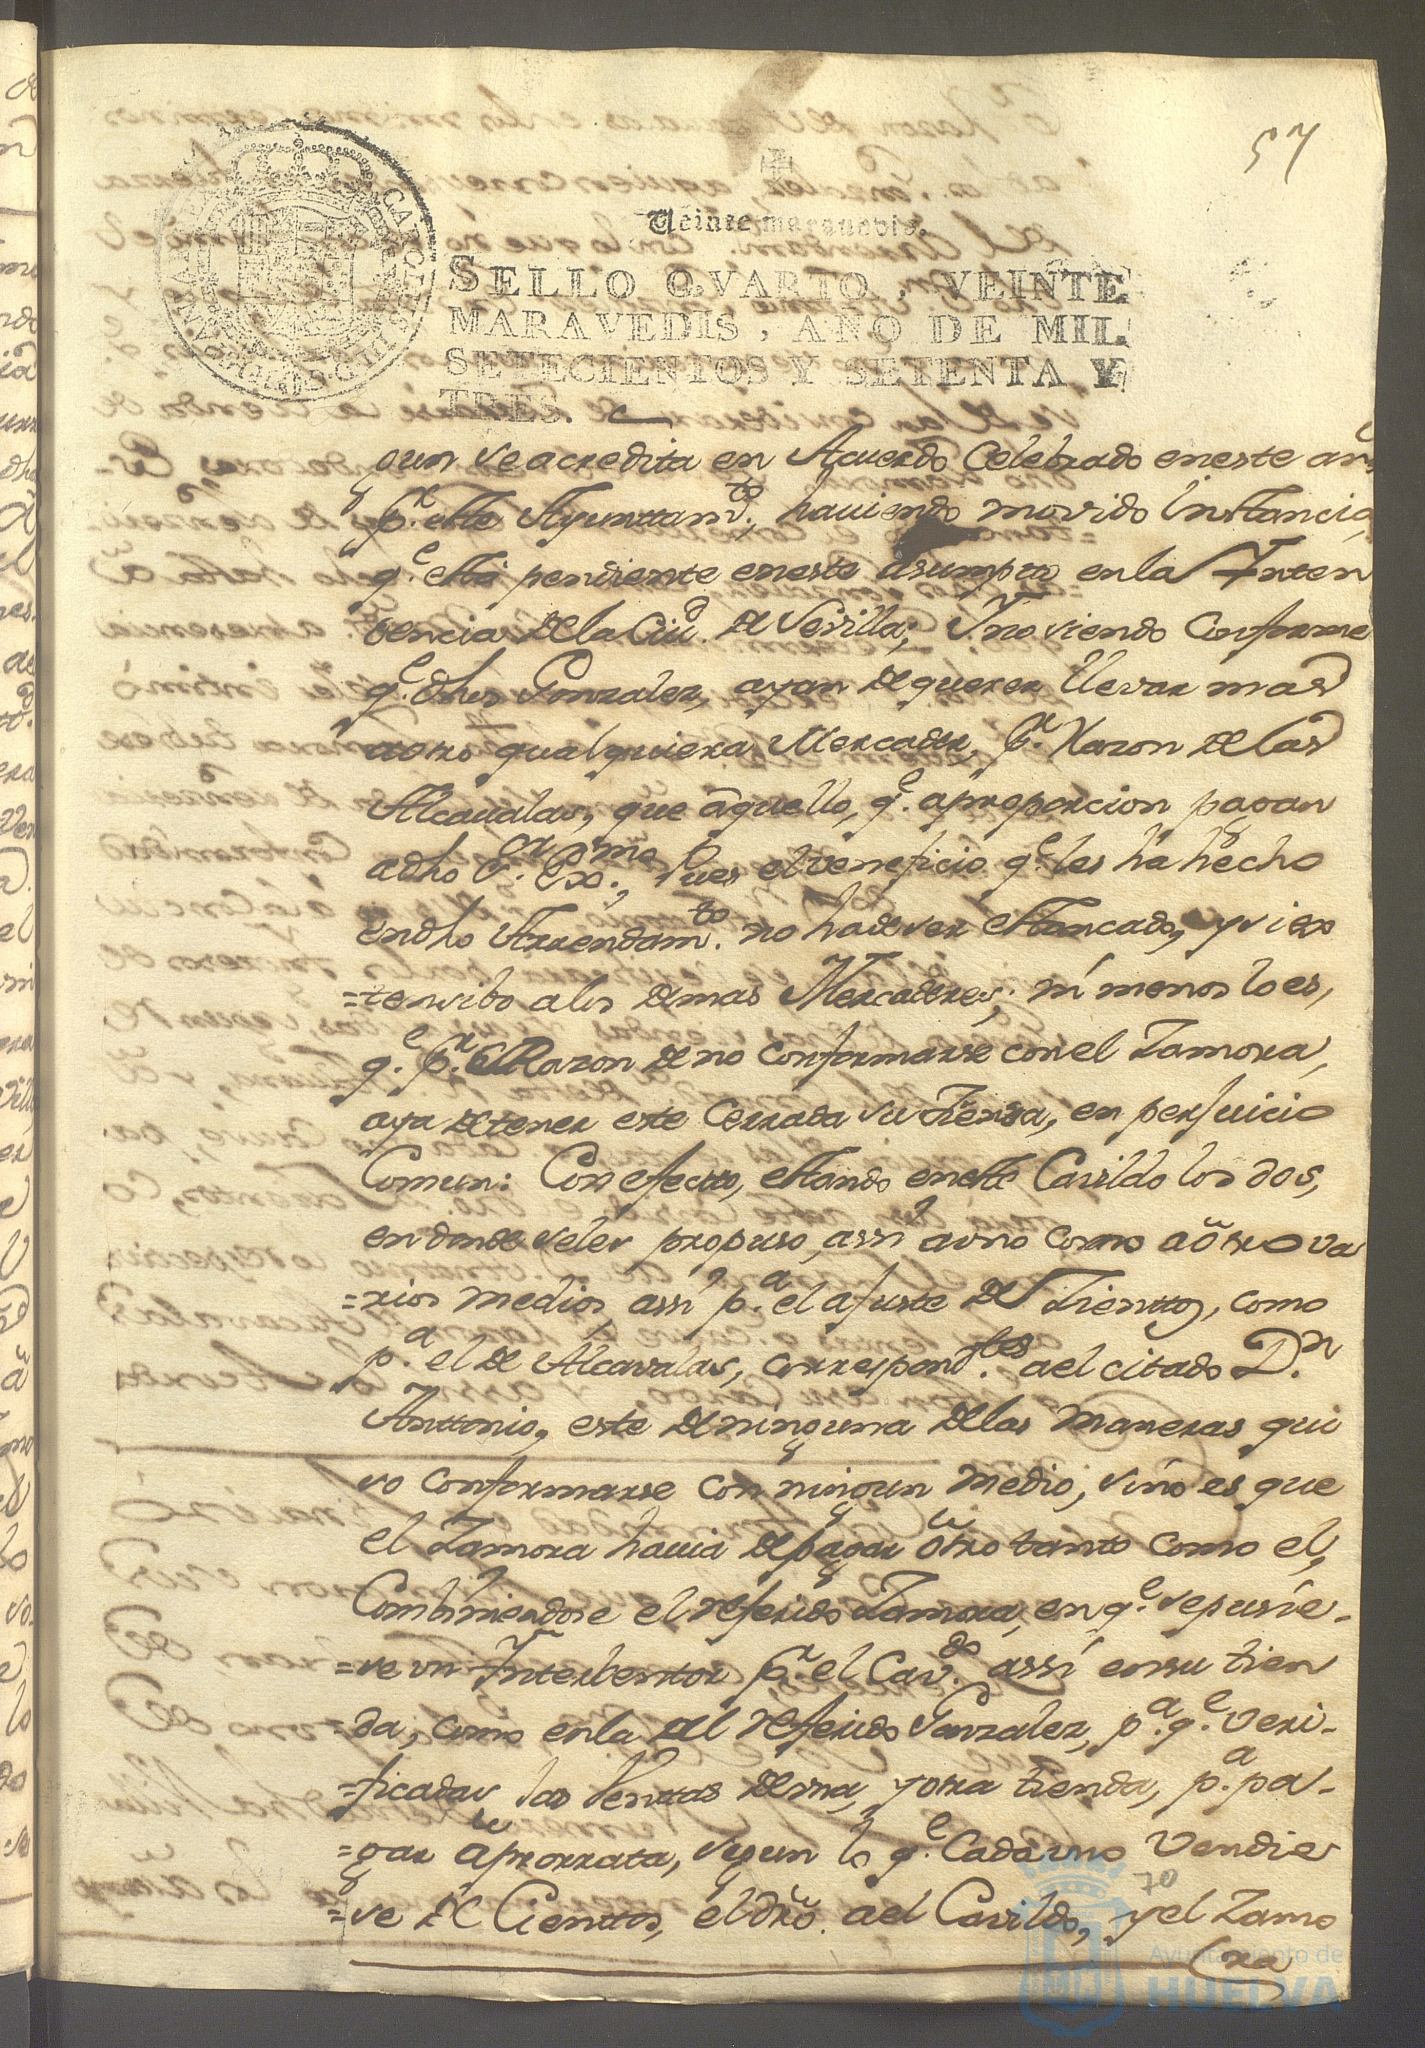 57
Veinte maravedis.
SELLO QVARTO, VEINTE
MARAVEDIS, AÑO DE MIL
SETECIENTOS Y SETENTA Y
TRES.
gun se acredita en Acuerdo Celebrado eneste añ
p.r este Ayunttam.to, haviendo movido Instancia
q.e està pendiente eneste asumpto enla Inten
dencia dela Ciu.d de Sevilla; Y no siendo Conforme
q.e dhos Gonzalez, ayan de querer llevar mas
aotro qualquiera Mercader, p.r Razon delas
Alcavalas, que âquello, q.e aproporcion pagan
adho S.or Ex.mo, Pues el veneficio q.e les ha hecho
endho Arrendam.to no hadeser estancado, y si ex
=tensibo alos demas Mercaderes; ni menos lo es,
q.e p.r Razon de no conformarse con el Zamora,
aya detener este Cerrada su Tienda, en perjuicio
Comun: Con efecto, estando eneste Cavildo los dos,
endonde seles propuso, assi auno como aôtro va
=rios medios, assi p.a el ajuste de Zientos, como
p.a el de Alcavalas, correspond.tes ael citado D.n
Anttonio, este deninguna delas maneras qui
so conformarse con ningun medio, sino es que
el Zamora havia depagar ôtro tanto como el,
Combiniendose el referido Zamora, en q.e se pusie-
=se un Interbentor p.r el Cav.do assi ensu tien
=da, como enla del referido Gonzalez, p.a q.e veri-
=ficadas las Venttas deuna, y otra tienda, p.a pa-
=gar âprorrata, segun lo q.e Cada uno Vendie
=se de Cienttos, el dro. ael Cavildo, y el Zamo
ra
70
Ayuntamiento de
HUELVA